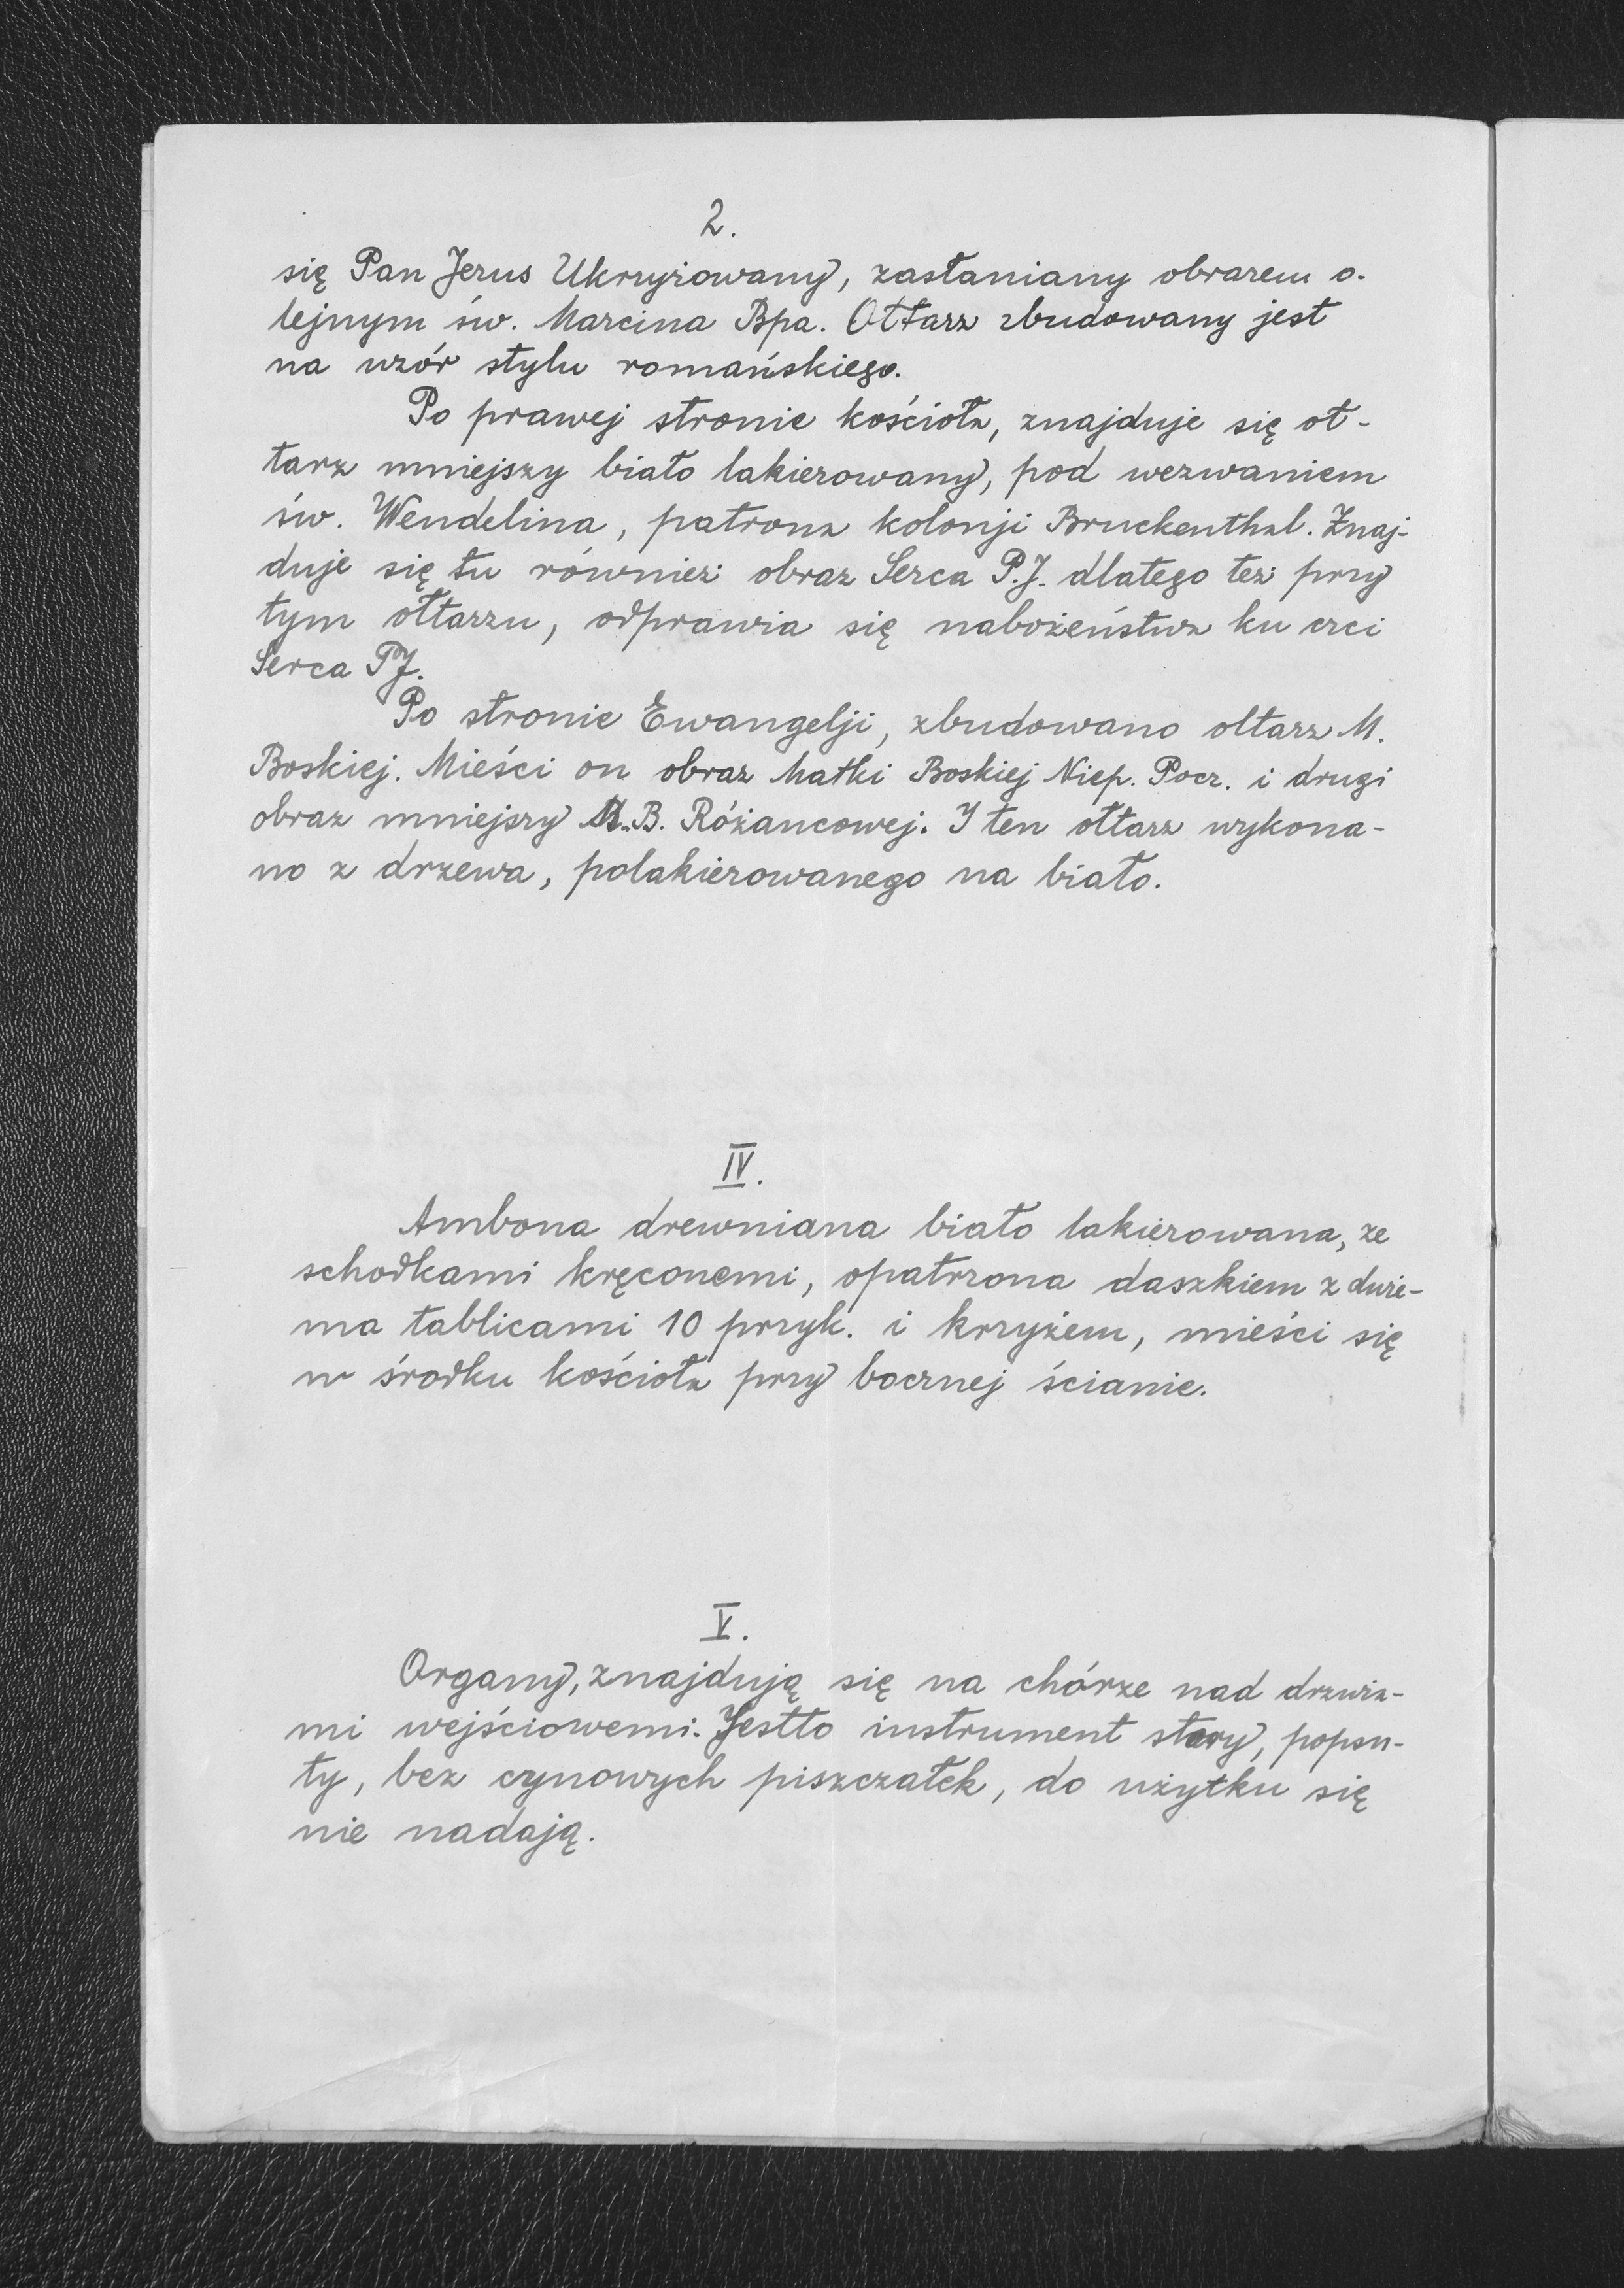 2.
się Pan Jezus Ukrzyżowany, zasłaniany obrazem o-
lejnym św. Marcina Bpa. Ołtarz zbudowany jest
na wzór stylu romańskiego.
Po prawej stronie kościoła, znajduje się oł-
tarz mniejszy biało lakierowany, pod wezwaniem
św. Wendelina, patrona kolonji Bruckenthal. Znaj-
duje się tu również obraz Serca P.J. dlatego też przy
tym ołtarzu, odprawia się nabożeństwa ku czci
Serca PJ.
Po stronie Ewangelji, zbudowano ołtarz M.
Boskiej. Mieści on obraz Matki Boskiej Niep. Pocz. i drugi
obraz mniejszy M.B. Różancowej. I ten ołtarz wykona-
no z drzewa, polakierowanego na biało.
IV.
Ambona drewniana biało lakierowana, ze
schodkami kręconemi, opatrzona daszkiem z dwie-
ma tablicami 10 przyk. i krzyżem, mieści się
w środku kościoła przy bocznej ścianie.
V.
Organy, znajdują się na chórze nad drzwia-
mi wejściowemi. Jestto instrument stary, popsu-
ty, bez cynowych piszczałek, do użytku się
nie nadają.